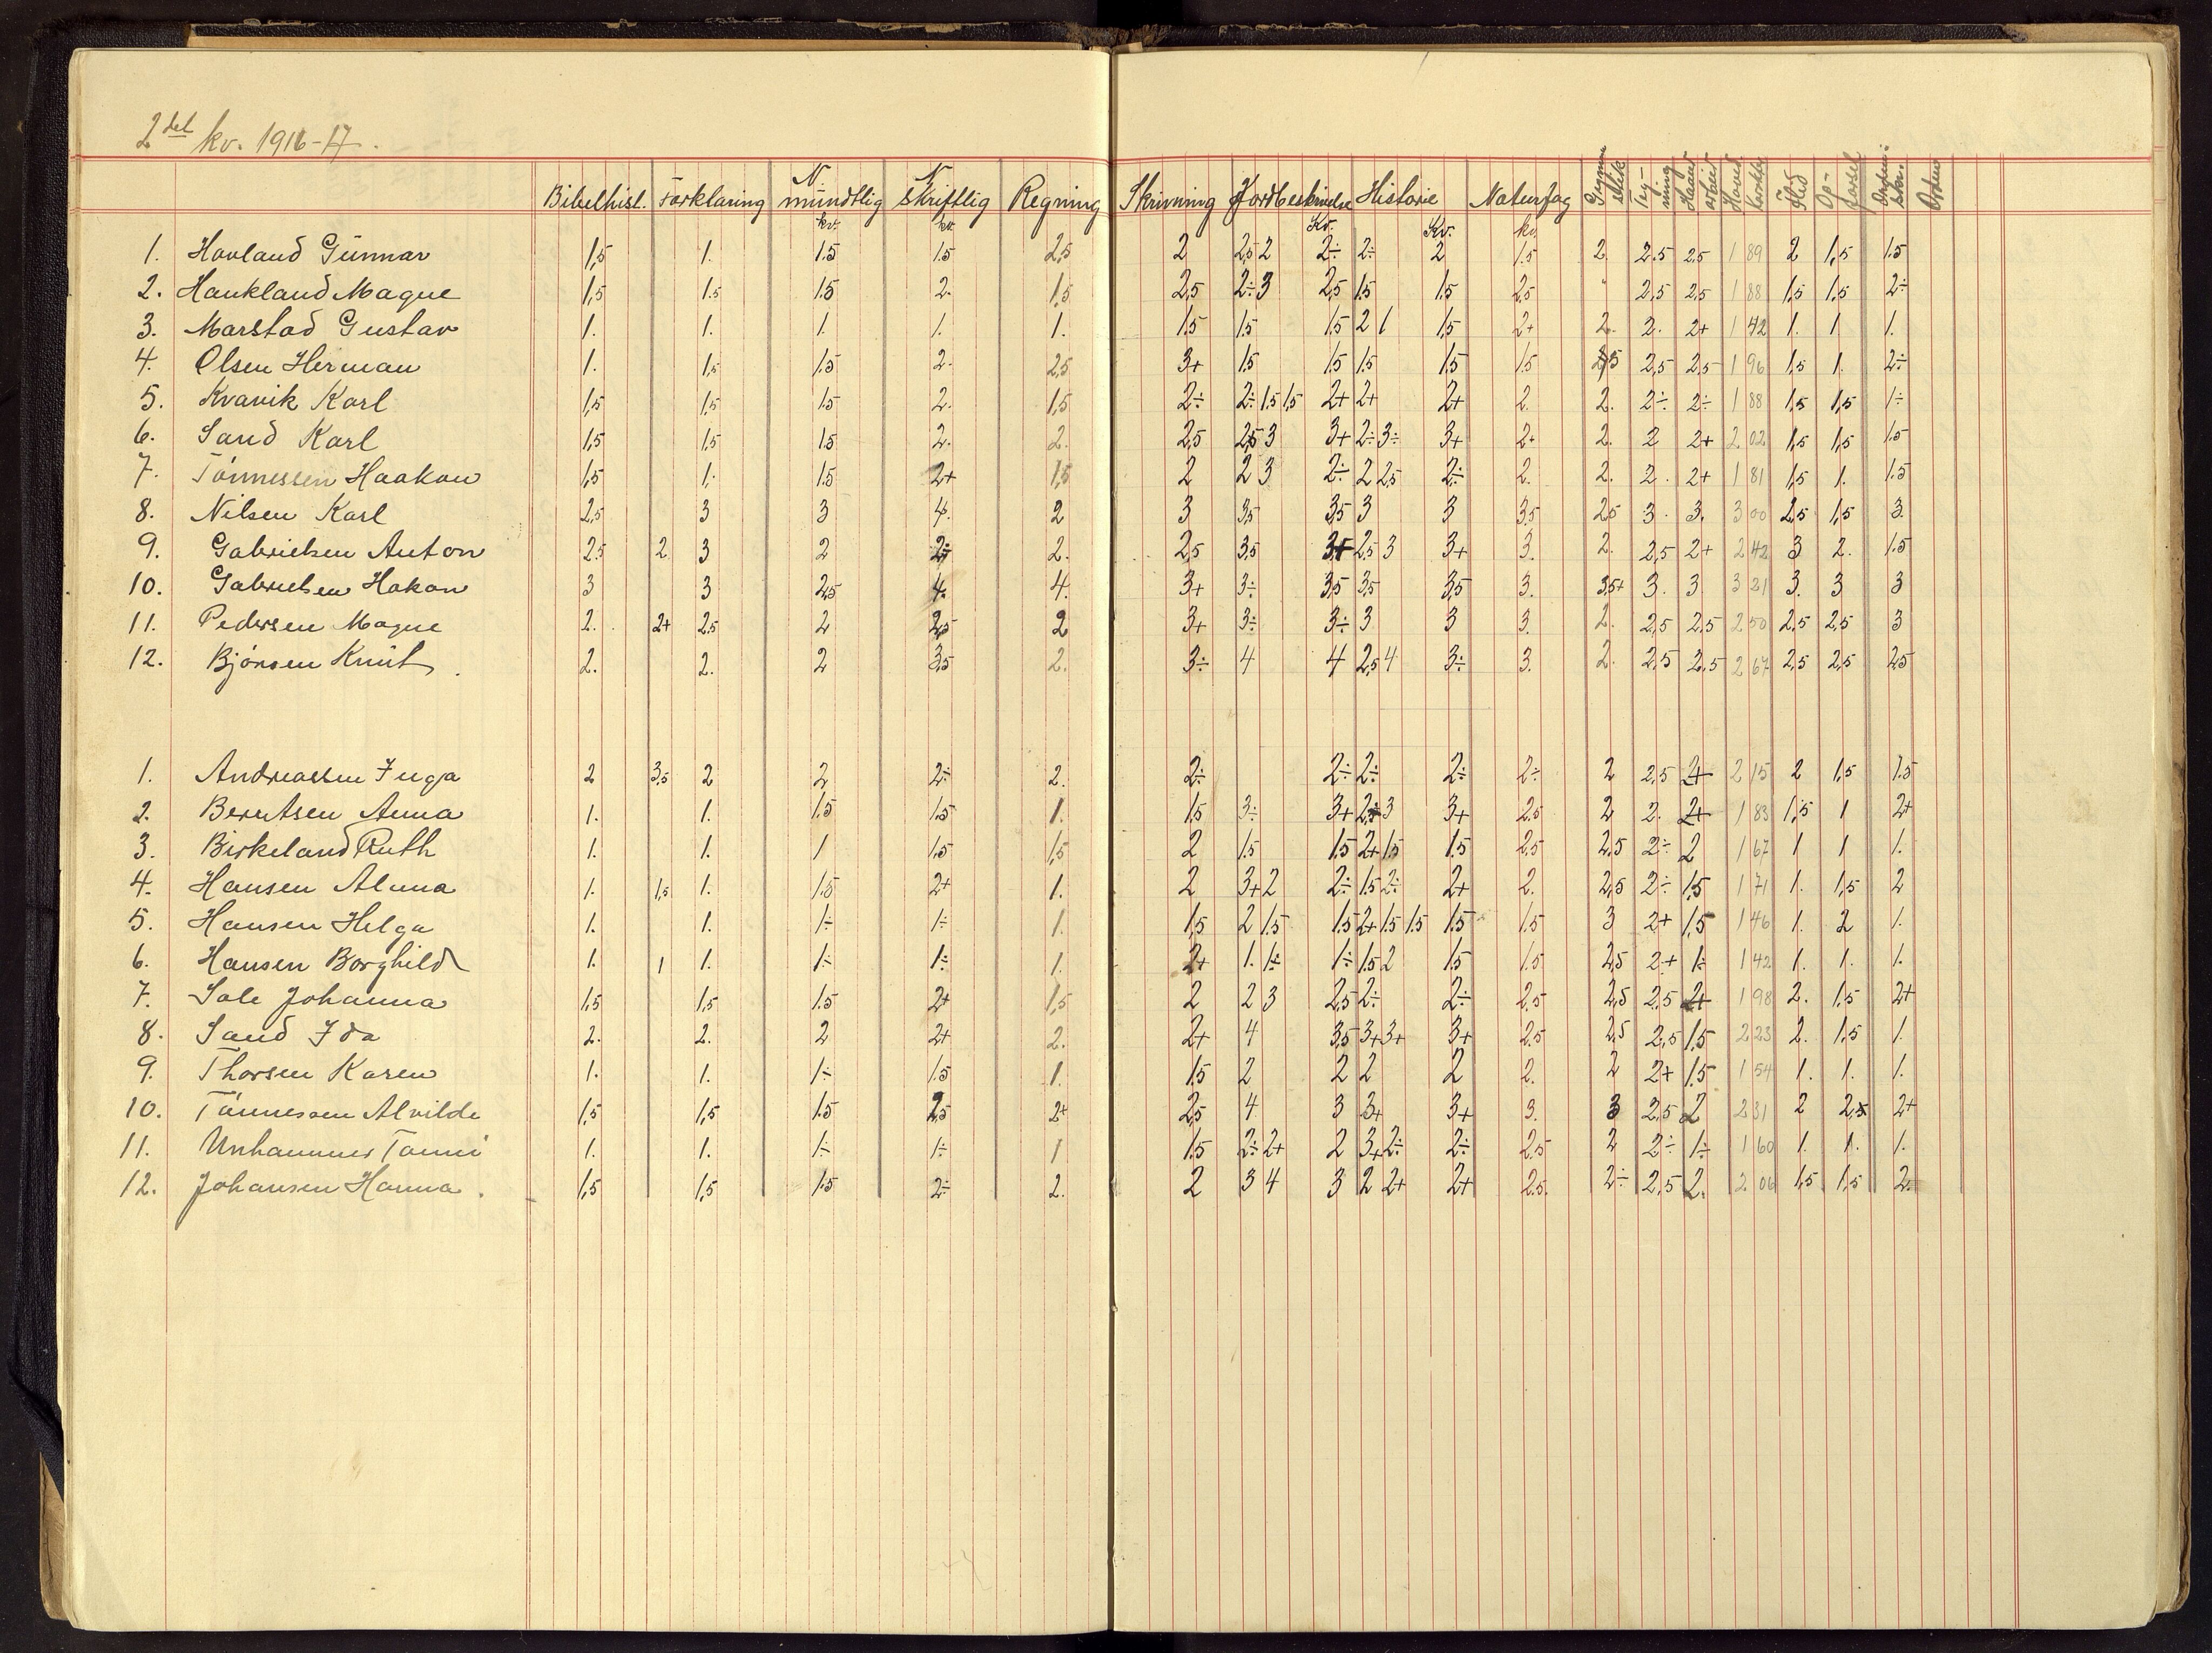 2det kv. 1916-17.
Bibelhist. Forklaring N. mundtlig N. skriftlig Regning Skrivning Jordbeskrivelse Historie Naturfag Gymnastik Tegning Haandarbeid Hovedkarakter Flid Opførsel Orden
kv. kv. Kv. Kv. kv.
1. Hovland Gunnar 1,5 1. 1.5 1.5 2,5 2 2,5 2 2÷ 2÷ 2 1.5 2. 2.5 2,5 1 89 2 1,5 1.5
2. Haukland Magne 1,5 1.5 1.5 2. 1,5 2,5 2÷ 3 2,5 1.5 1.5 2,5 " 2,5 2,5 1 88 1,5 1,5 2÷
3. Marstad Gustav 1. 1. 1. 1. 1. 1.5 1.5 1.5 2 1 1.5 2+ 2. 2. 2+ 1 42 1. 1 1.
4. Olsen Herman 1. 1,5 1.5 2. 2,5 3+ 1.5 1.5 1.5 1.5 1.5 2,5 2,5 1 96 1,5 1. 2÷
5. Kvavik Karl 1,5 1,5 1.5 2. 1,5 2÷ 2÷ 1.5 1,5 2+ 2+ 2+ 2. 2. 2÷ 2÷ 1 88 1,5 1,5 1÷
6. Sand Karl 1,5 1,5 1.5 2. 2. 2,5 2,5 3 3+ 2÷ 3÷ 3+ 2+ 2. 2 2+ 2 02 1,5 1,5 1.5
7. Tönnessen Haakon 1,5 1. 1.5 2+ 1,5 2 2 3 2÷ 2 2,5 2÷ 2. 2. 2. 2+ 1 81 1,5 1. 1.5
8. Nilsen Karl 2,5 3 3 4. 2 3 3,5 3,5 3 3 3,5 2,5 3. 3. 3 00 2,5 1,5 3.
9. Gabrielsen Anton 2.5 2. 3 2 2÷ 2. 2,5 3,5 3+ 2,5 3 3+ 3. 2. 2,5 2+ 2 42 3 2. 1.5
10. Gabrielsen Hakon 3 3 2,5 4. 4. 3+ 3÷ 3,5 3,5 3,5 3. 3,5+ 3. 3 3 21 3. 3 3
11. Pedersen Magne 2. 2+ 2.5 2 2,5 2 3+ 3÷ 3÷ 3 3 3. 2. 2,5 2,5 2 50 2,5 2,5 3
12. Bjönsen Knut. 2. 2. 2 3,5 2. 3÷ 4 4 2,5 4 3÷ 3. 2. 2,5 2,5 2 67 2,5 2,5 2,5
1. Andreassen Inga 2 3,5 2 2 2÷ 2. 2÷ 2÷ 2÷ 2÷ 2÷ 2 2,5 2+ 2 15 2 1,5 1.5
2. Berntsen Anna 1. 1. 1.5 1.5 1. 1.5 3÷ 3+ 3 3+ 2.5 2 2. 2+ 1 83 1,5 1 2+
3. Birkeland Ruth 1. 1. 1 1.5 1,5 2 1.5 1.5 2+ 1.5 1.5 2,5 2,5 2÷ 2 1 67 1 1 1.
4. Hansen Alma 1. 1,5 1. 1.5 2+ 1. 2 3+ 2 2÷ 1.5 2÷ 2+ 2. 2,5 2÷ 1,5 1 71 1. 1,5 2
5. Hansen Helga 1. 1. 1÷ 1÷ 1. 1,5 2 1.5 1.5 2+ 1.5 1.5 1.5 1.5 3 2+ 1,5 1 46 1. 2 1.
6. Hansen Borghild 1. 1 1. 1÷ 1÷ 1. 2+ 1. 1÷ 1÷ 1.5 2 1.5 1.5 2,5 2+ 1÷ 1 42 1. 1. 1.
7. Sole Johanna 1,5 1,5 1.5 2+ 1,5 2 2 3 2,5 2÷ 2÷ 2.5 2,5 2,5 2+ 1 98 2. 1,5 2+
8. Sand Ida 2. 2. 2 2+ 2. 2+ 4 3,5 3+ 3+ 3+ 2.5 2,5 2,5 1,5 2 23 2. 1,5 1.
9. Thorsen Karen 1. 1. 1÷ 1.5 1. 1.5 2 2 2 2 2. 2 2+ 1.5 1 54 1. 1. 1.
10. Tönnessen Alvilde 1,5 1,5 1.5 2,5 2+ 2,5 4 3 3+ 3+ 3. 3 2,5 2 2 31 2 2,5 2+
11. Unhammer Tanni 1. 1. 1÷ 1÷ 1 1.5 2÷ 2+ 2 3+ 2÷ 2÷ 2.5 2 2÷ 1÷ 1 60 1. 1. 1.
12. Johansen Hanna. 1,5 1,5 1.5 2÷ 2. 2 3 4 3 2 2+ 2+ 2.5 2÷ 2,5 2. 2 06 1,5 1,5 2.